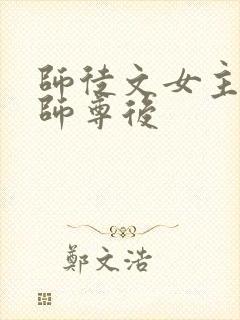 師徒文女主
師尊後
鄭文浩